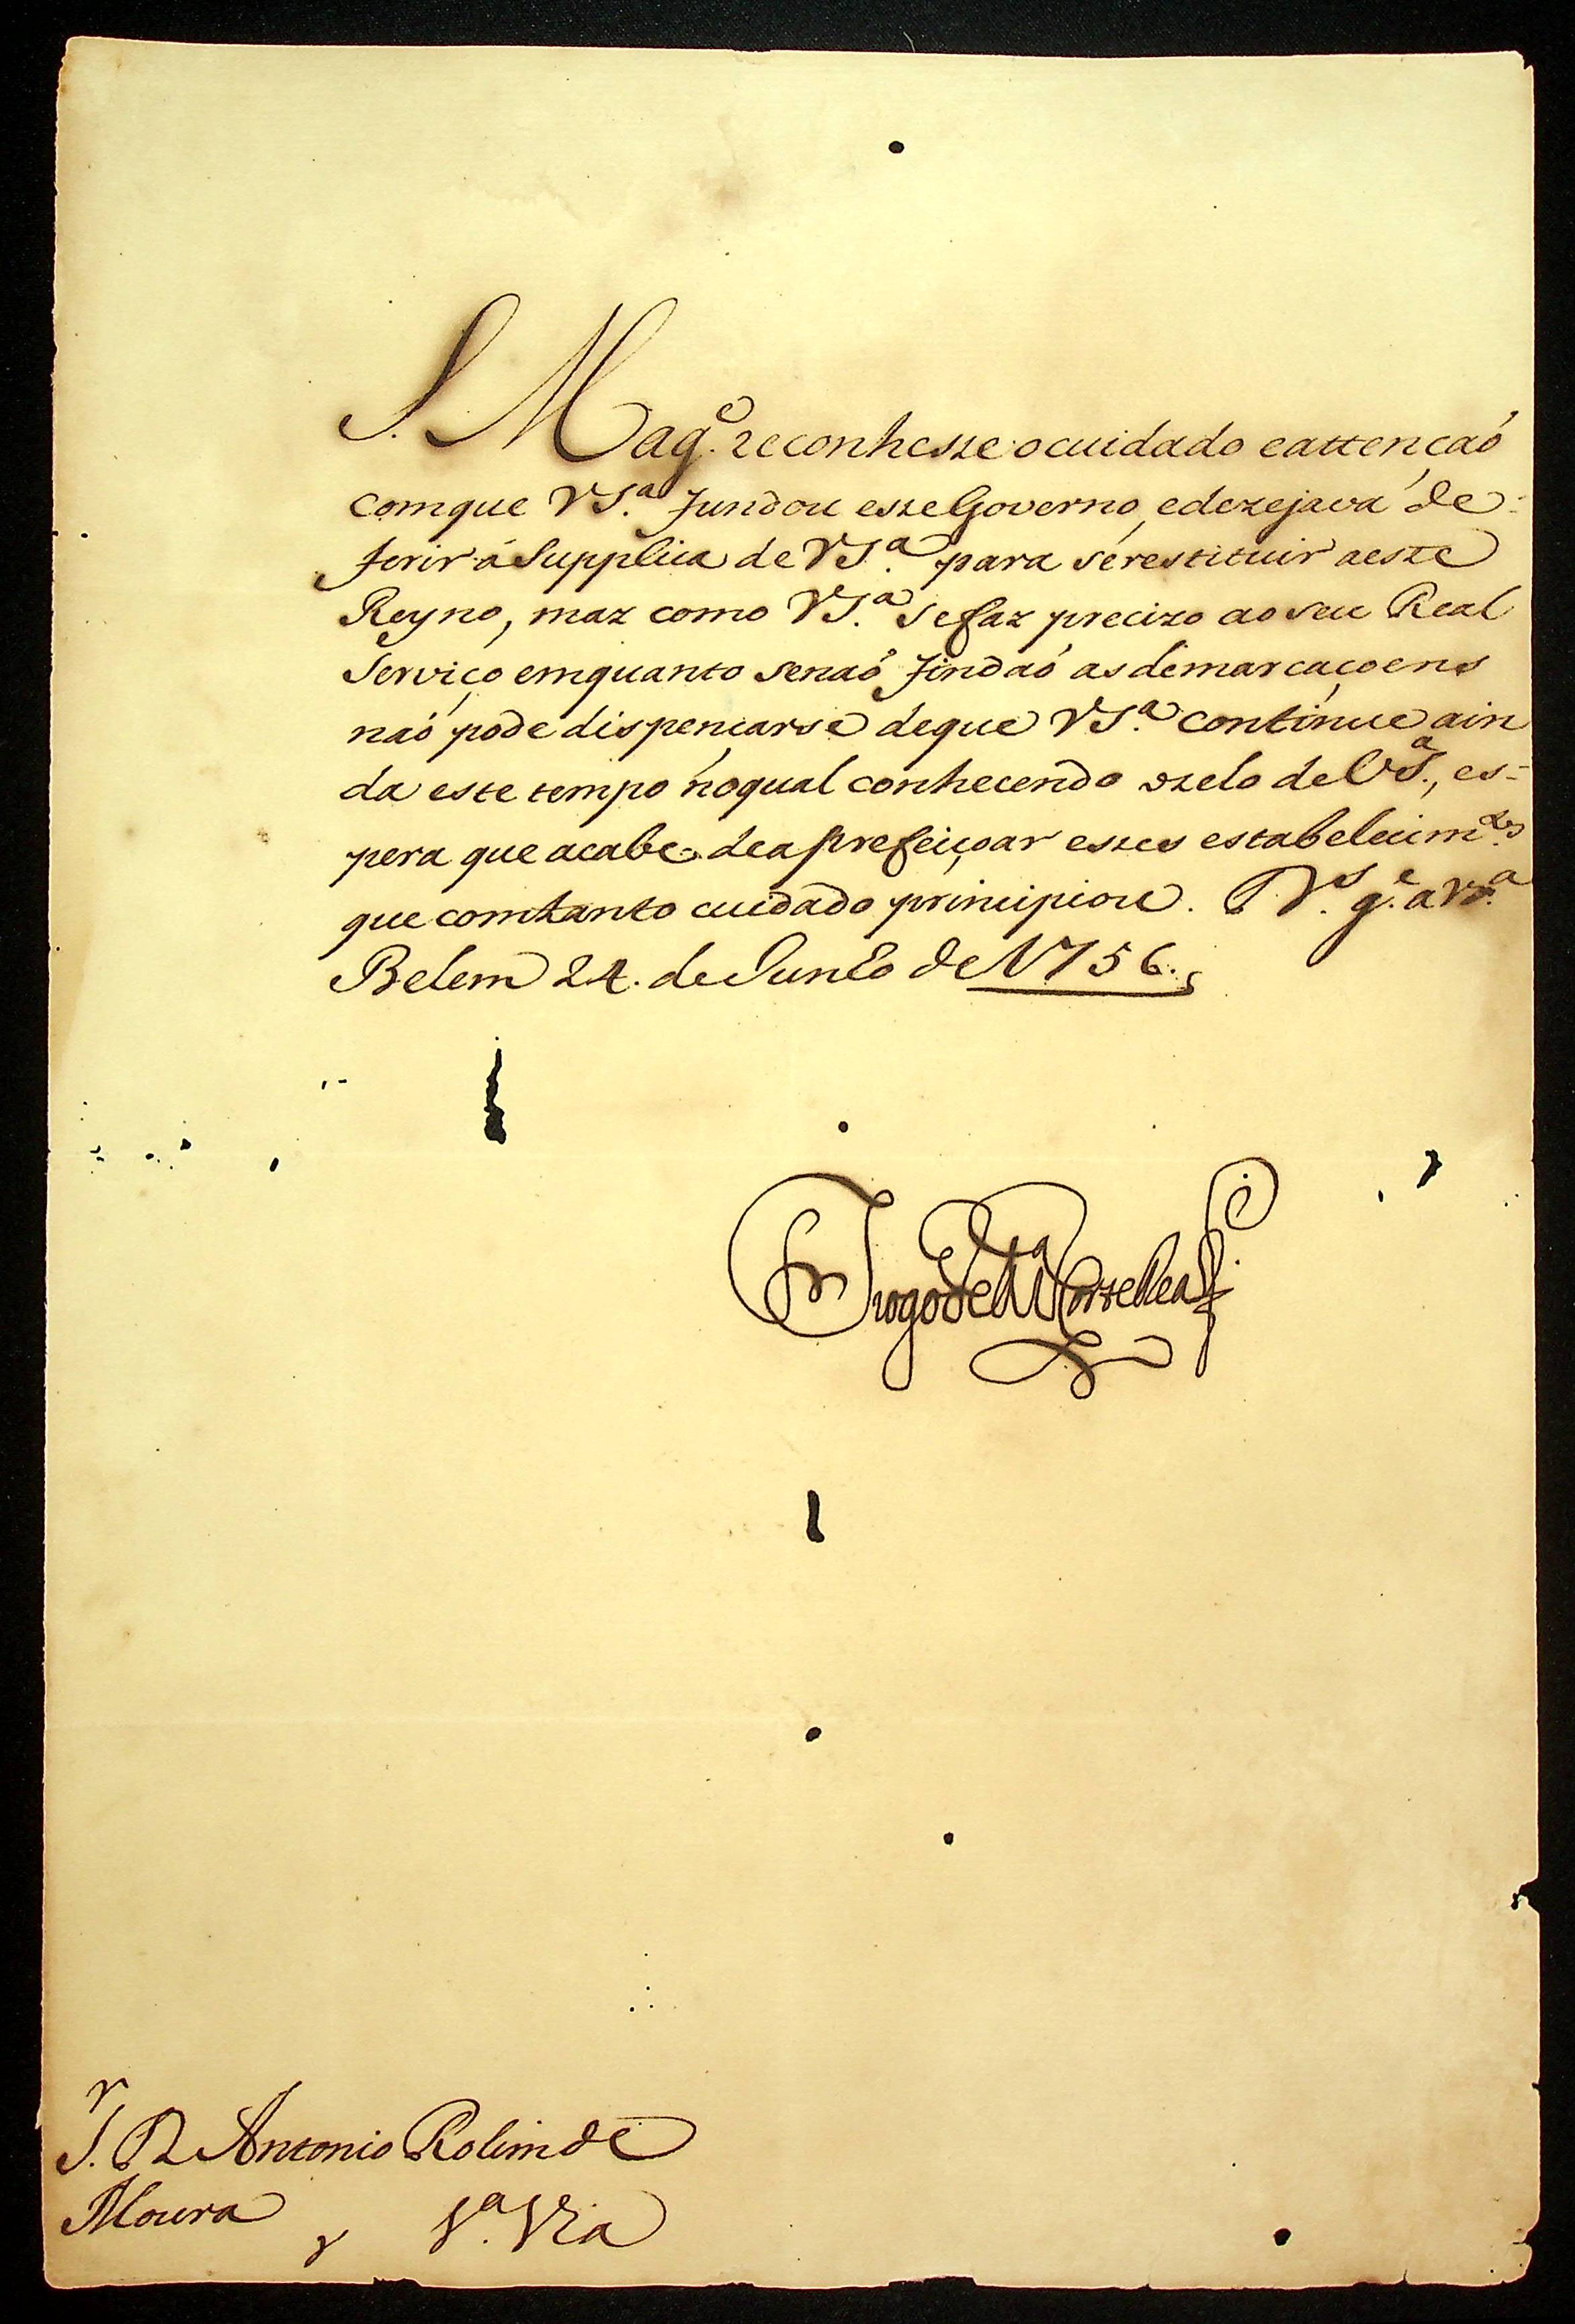 S. Mag.e reconhesse o cuidado e attençaõ
com que VS.a fundou esse Governo, e dezejava de-
ferir á Supplica de VS.a para se restituir a este
Reyno, maz como VS.a se faz precizo ao seu Real
Serviço emquanto se naõ findaõ as demarcaçoens
naõ pode dispençarse de que VS.a continue ain
da este tempo no qual conhecendo o zelo de VS.a, es-
pera que acabe de aprefeiçoar esses estabelecim.tos
que com tanto cuidado principiou. D.s g.e a VS.a
Belem 24. de Junho de 1756.
Diogo de M.ça Corte Real
S.r D. Antonio Rolim de
Moura
1.a Via